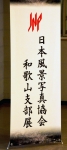 日本風景写真協会
和歌山支部展